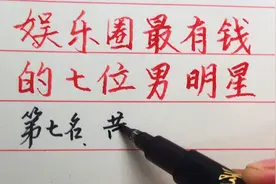 娱乐圈最有钱
的七位男明星
第七名、黄